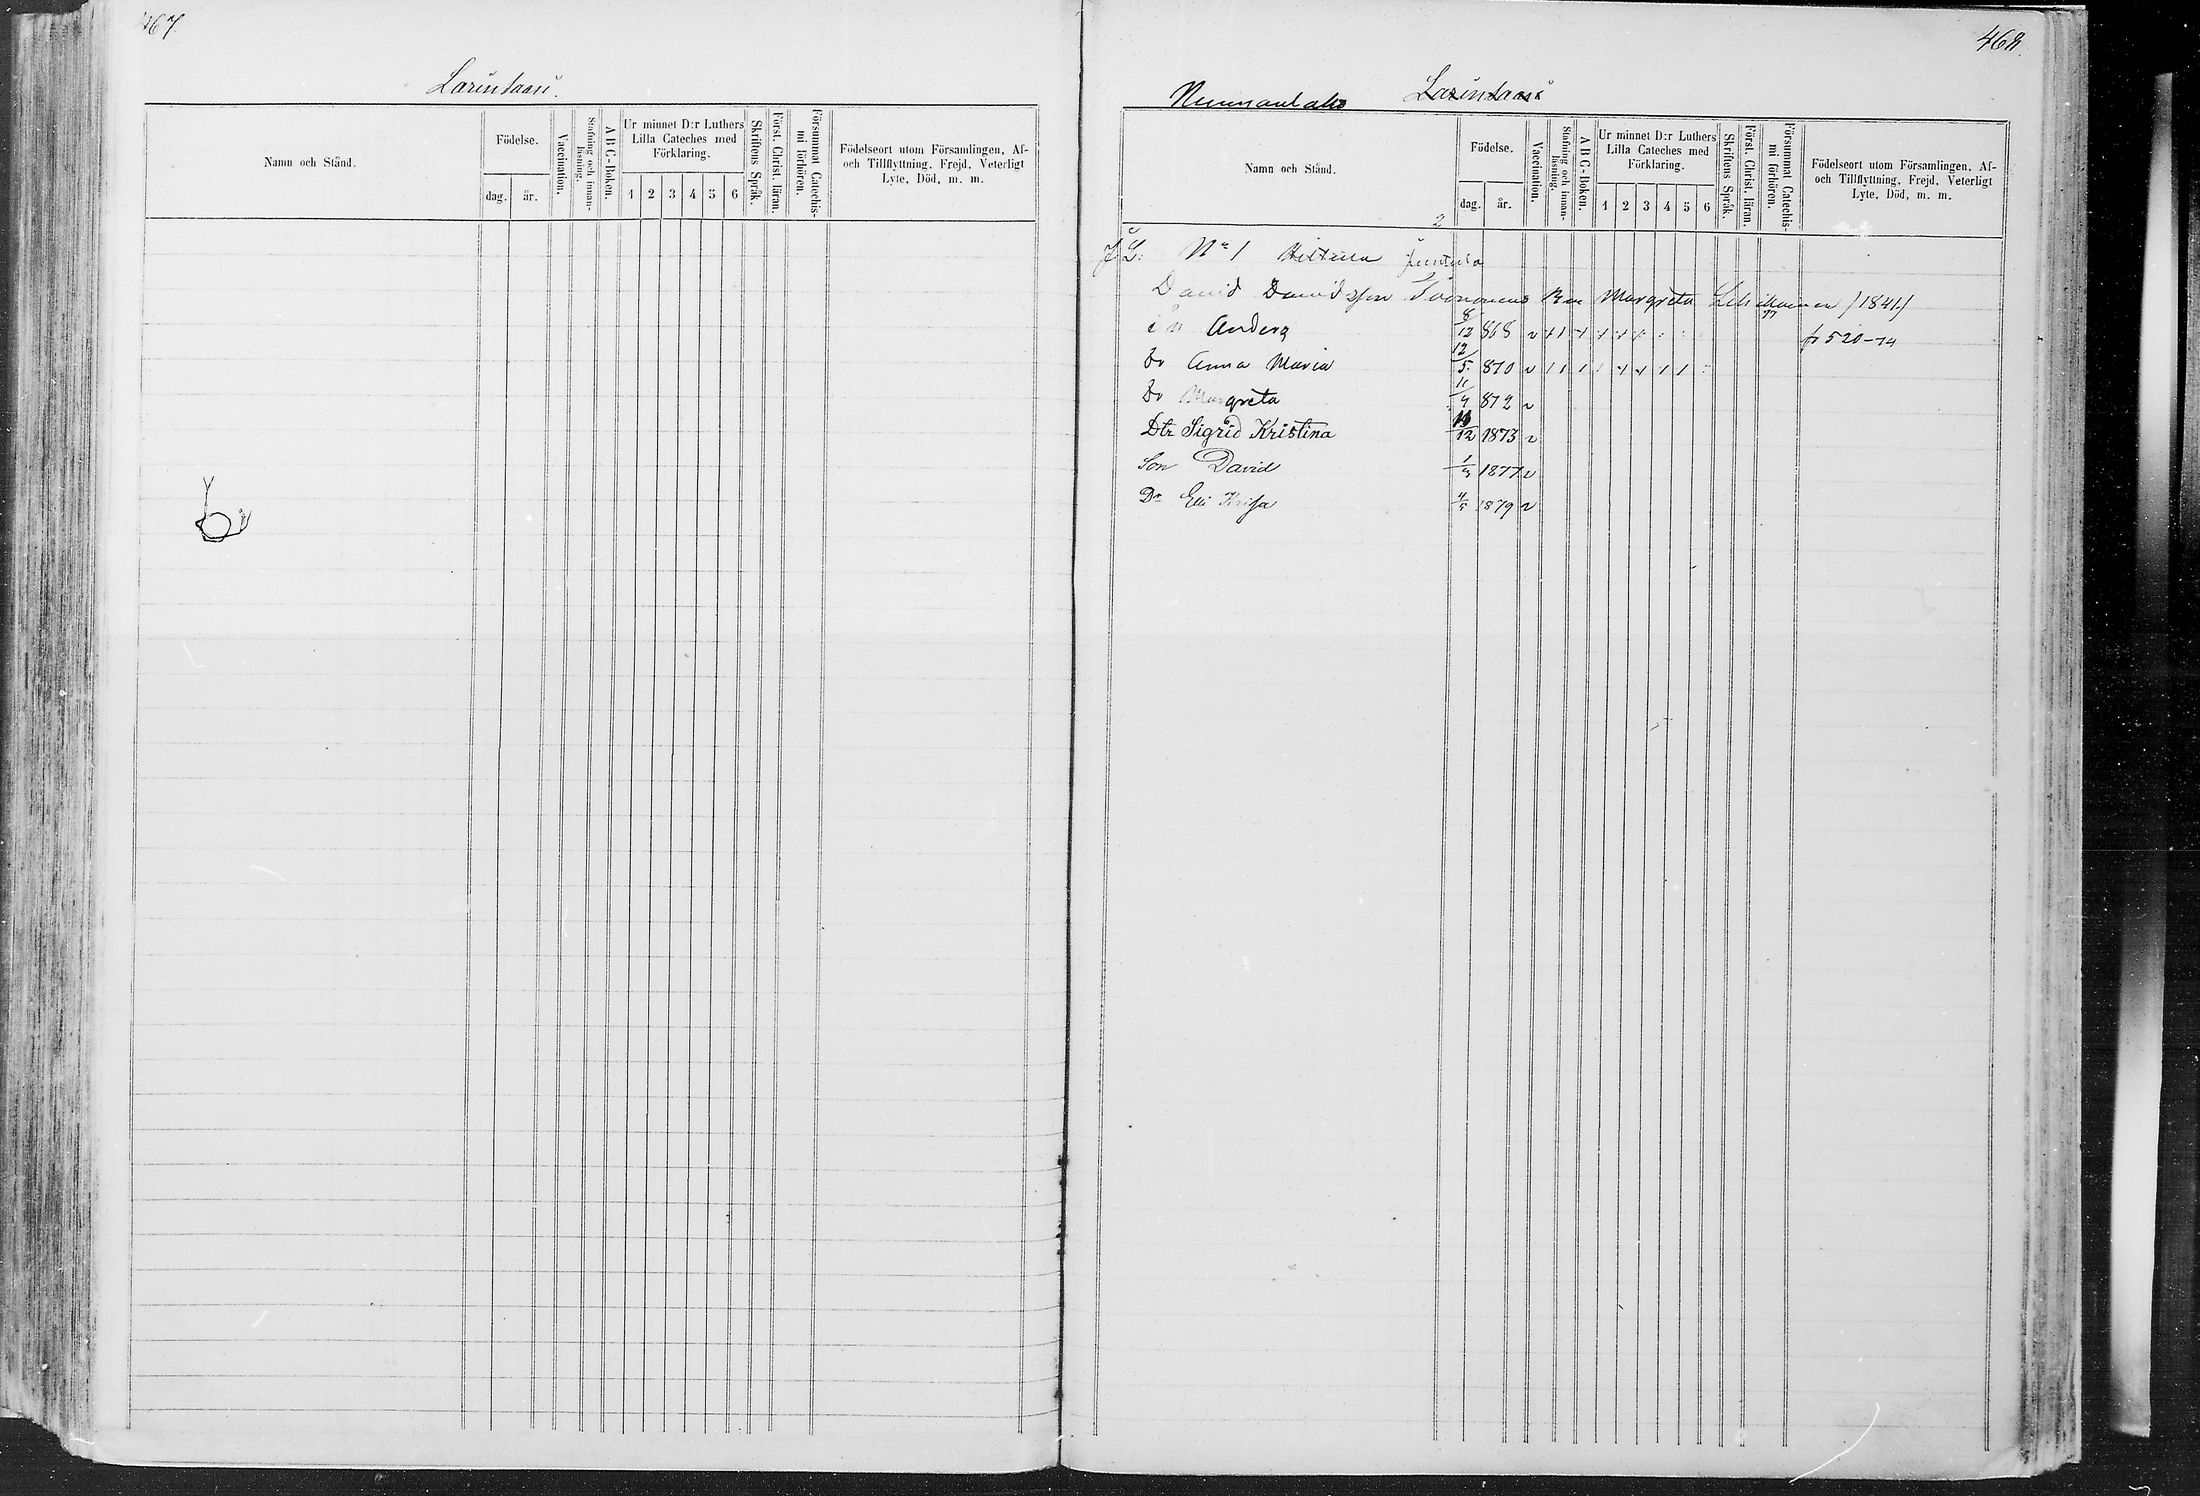 467.
Larinsaari.
Namn och Stånd.
Födelse.
dag. år.
Vaccination.
Stafning och innan-läsning.
A B C-Boken.
Ur minnet D:r Luthers Lilla Cateches med Förklaring.
1 2 3 4 5 6
Skriftens Språk.
Först. Christ. läran.
Försummat Catechis-mi förhören.
Födelseort utom Församlingen, Af- och Tillflyttning, Frejd, Veterligt Lyte, Död, m. m.
468.
Larinsaari
Namn och Stånd.
Födelse.
dag. år.
Vaccination.
Stafning och innan-läsning.
A B C-Boken.
Ur minnet D:r Luthers Lilla Cateches med Förklaring.
1 2 3 4 5 6
Skriftens Språk.
Först. Christ. läran.
Försummat Catechis-mi förhören.
Födelseort utom Församlingen, Af- och Tillflyttning, Frejd, Veterligt Lyte, Död, m. m.
2
N:o 1
David Davidsson Margreta /1841/
Anders 8/12 868 v fr 520-74
Dr Anna Maria 12/5 870 v
Dr Margreta 11/4 872 v
Dtr Sigrid Kristina 12 1873 v
Son David 1877 v
Dr Elli 4/5 1879 v